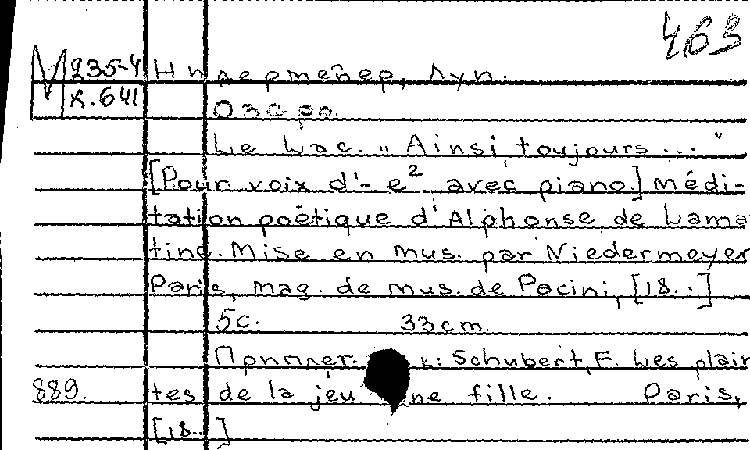 463
М 235-4 Нидермейер, Луи.
к.641 Озеро
Le Lac. „Ainsi toujours..."
[Pour voix d'- e² avec piano] Médi-
tation poétique d'Alphonse de Lamar
tine. Mise en mus. par Niedermeyer
Paris, mag. de mus. de Pacini, [18..]
5c. 33cm
Приплет. к: Schubert, F. Les plain
889. tes de la jeune fille. Paris,
[18..]